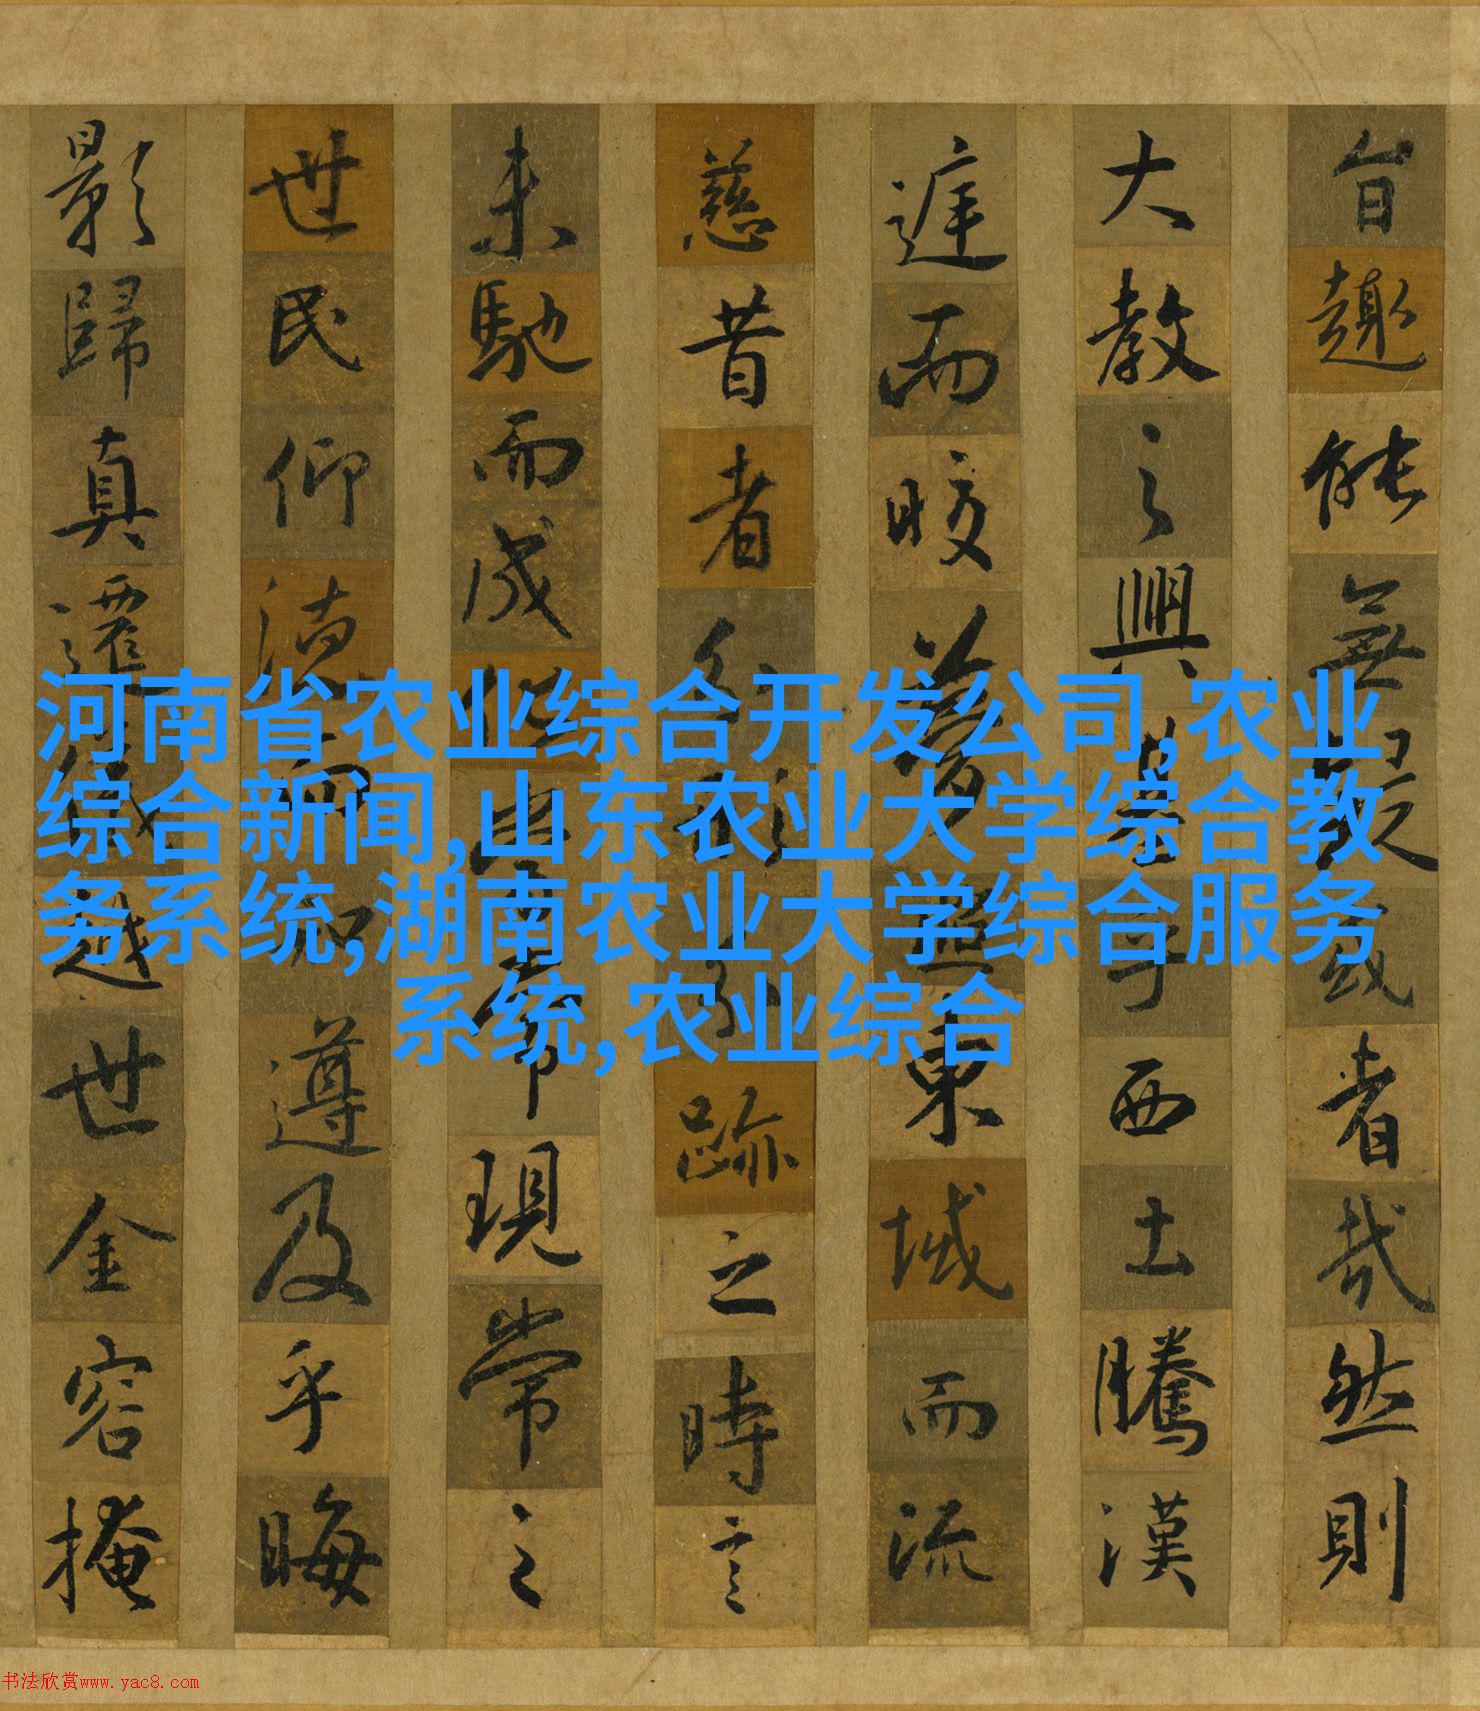 旨趣能無疑惑者哉然則
大教之興基乎西土騰漢
庭而皎夢照東域而流
慈昔者分形分跡之時言
未馳而成化當常現常之
世民仰德而知遵及乎晦
影歸真遷儀越世金容掩
河南省农业综合开发公司,农业
综合新闻,山东农业大学综合教
务系统,湖南农业大学综合服务
系统,农业综合
书法欣赏www.yac8.com